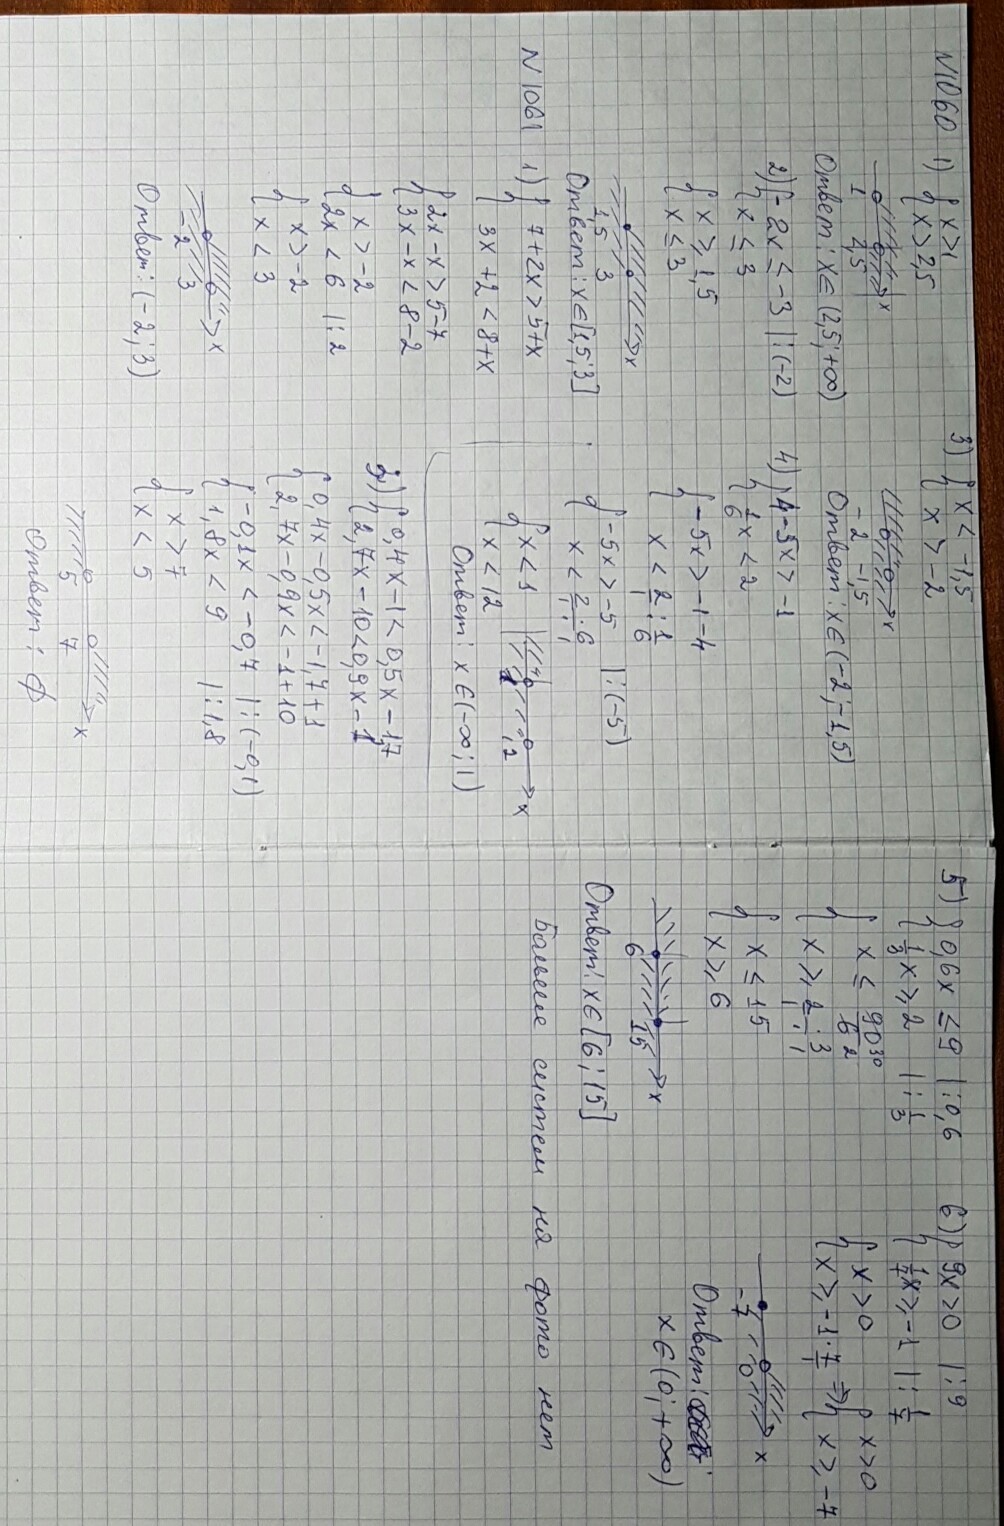 N1060 1) { x > 1
{ x > 2,5
1 2,5 x
Ответ: x∈(2,5; +∞)
2) { -2x ≤ -3 |:(-2)
{ x ≤ 3
{ x ≥ 1,5
{ x ≤ 3
1,5 3 x
Ответ: x∈[1,5; 3]
3) { x < -1,5
{ x > -2
-2 -1,5 x
Ответ: x∈(-2; -1,5)
4) { 4-5x > -1
{ 1/6 x < 2
{ -5x > -1-4
{ x < 2/1 : 1/6
{ -5x > -5 |:(-5)
{ x < 2·6/1·1
{ x < 1
{ x < 12
1 12 x
Ответ: x∈(-∞; 1)
5) { 0,6x ≤ 9 |:0,6
{ 1/3 x ≥ 2 |: 1/3
{ x ≤ 90 30/6 2
{ x ≥ 2·3/1·1
{ x ≤ 15
{ x ≥ 6
6 15 x
Ответ: x∈[6; 15]
6) { 9x > 0 |:9
{ 1/7 x ≥ -1 |: 1/7
{ x > 0
{ x ≥ -1· 7/1 ⇒ { x > 0
{ x ≥ -7
-7 0 x
Ответ:
x∈(0; +∞)
N1061 1) { 7+2x > 5+x
{ 3x+2 < 8+x
{ 2x-x > 5-7
{ 3x-x < 8-2
{ x > -2
{ 2x < 6 |:2
{ x > -2
{ x < 3
-2 3 x
Ответ: (-2; 3)
2) { 0,4x-1 < 0,5x-1,7
{ 2,7x-10 < 0,9x-1
{ 0,4x-0,5x < -1,7+1
{ 2,7x-0,9x < -1+10
{ -0,1x < -0,7 |:(-0,1)
{ 1,8x < 9 |:1,8
{ x > 7
{ x < 5
5 7 x
Ответ: ∅
Больше систем на фото нет